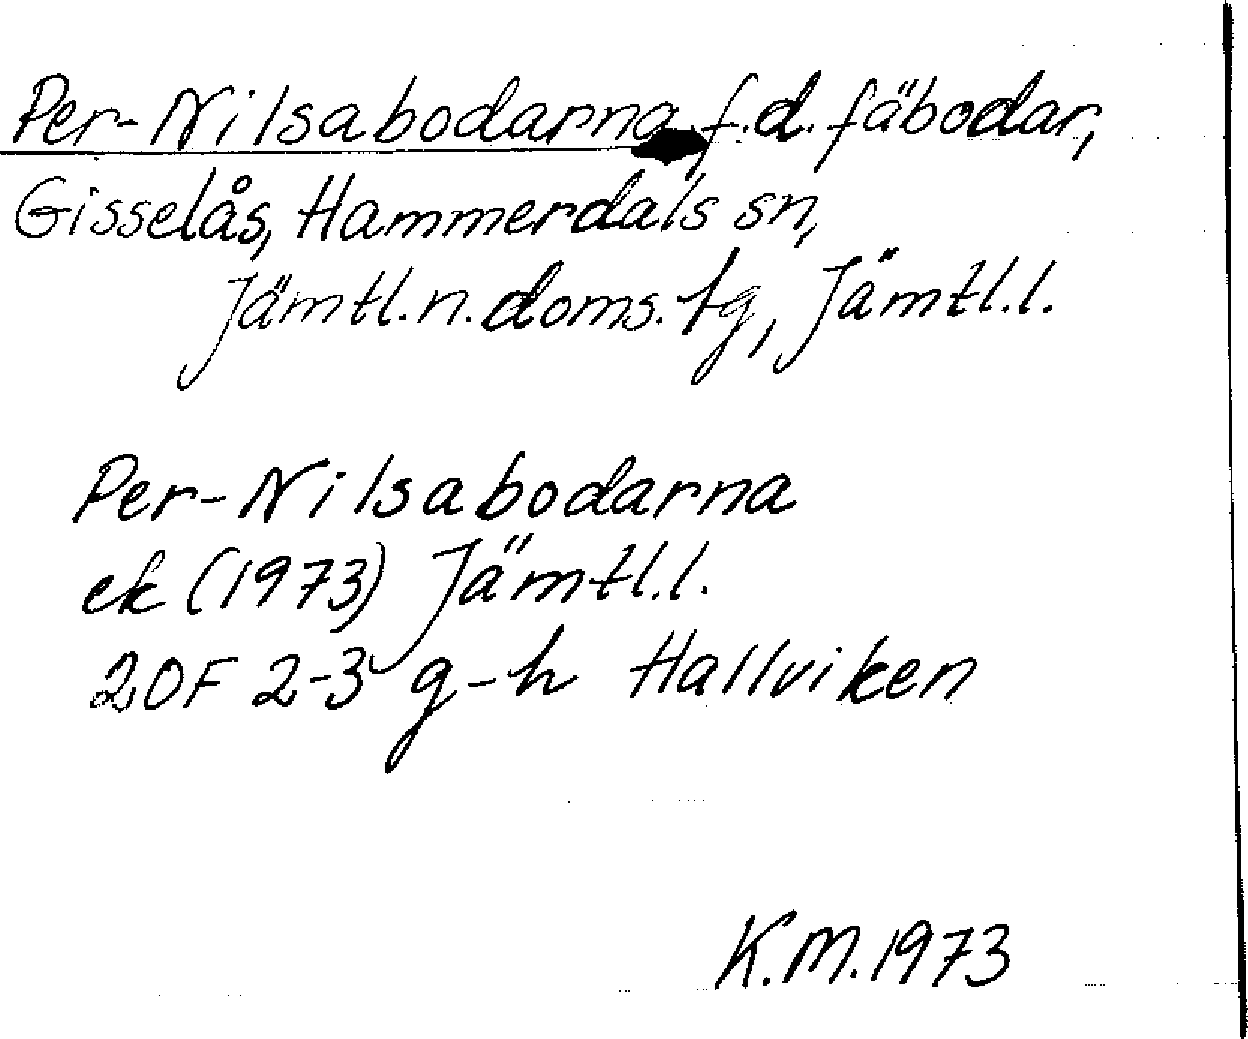 Per-Nilsabodarna, f.d. fäbodar,
Gisselås, Hammerdals sn,
Jämtl.n.doms.tg, Jämtl.l.
Per-Nilsabodarna
ek (1973) Jämtl.l.
20F 2-3 g-h Hallviken
K.M.1973